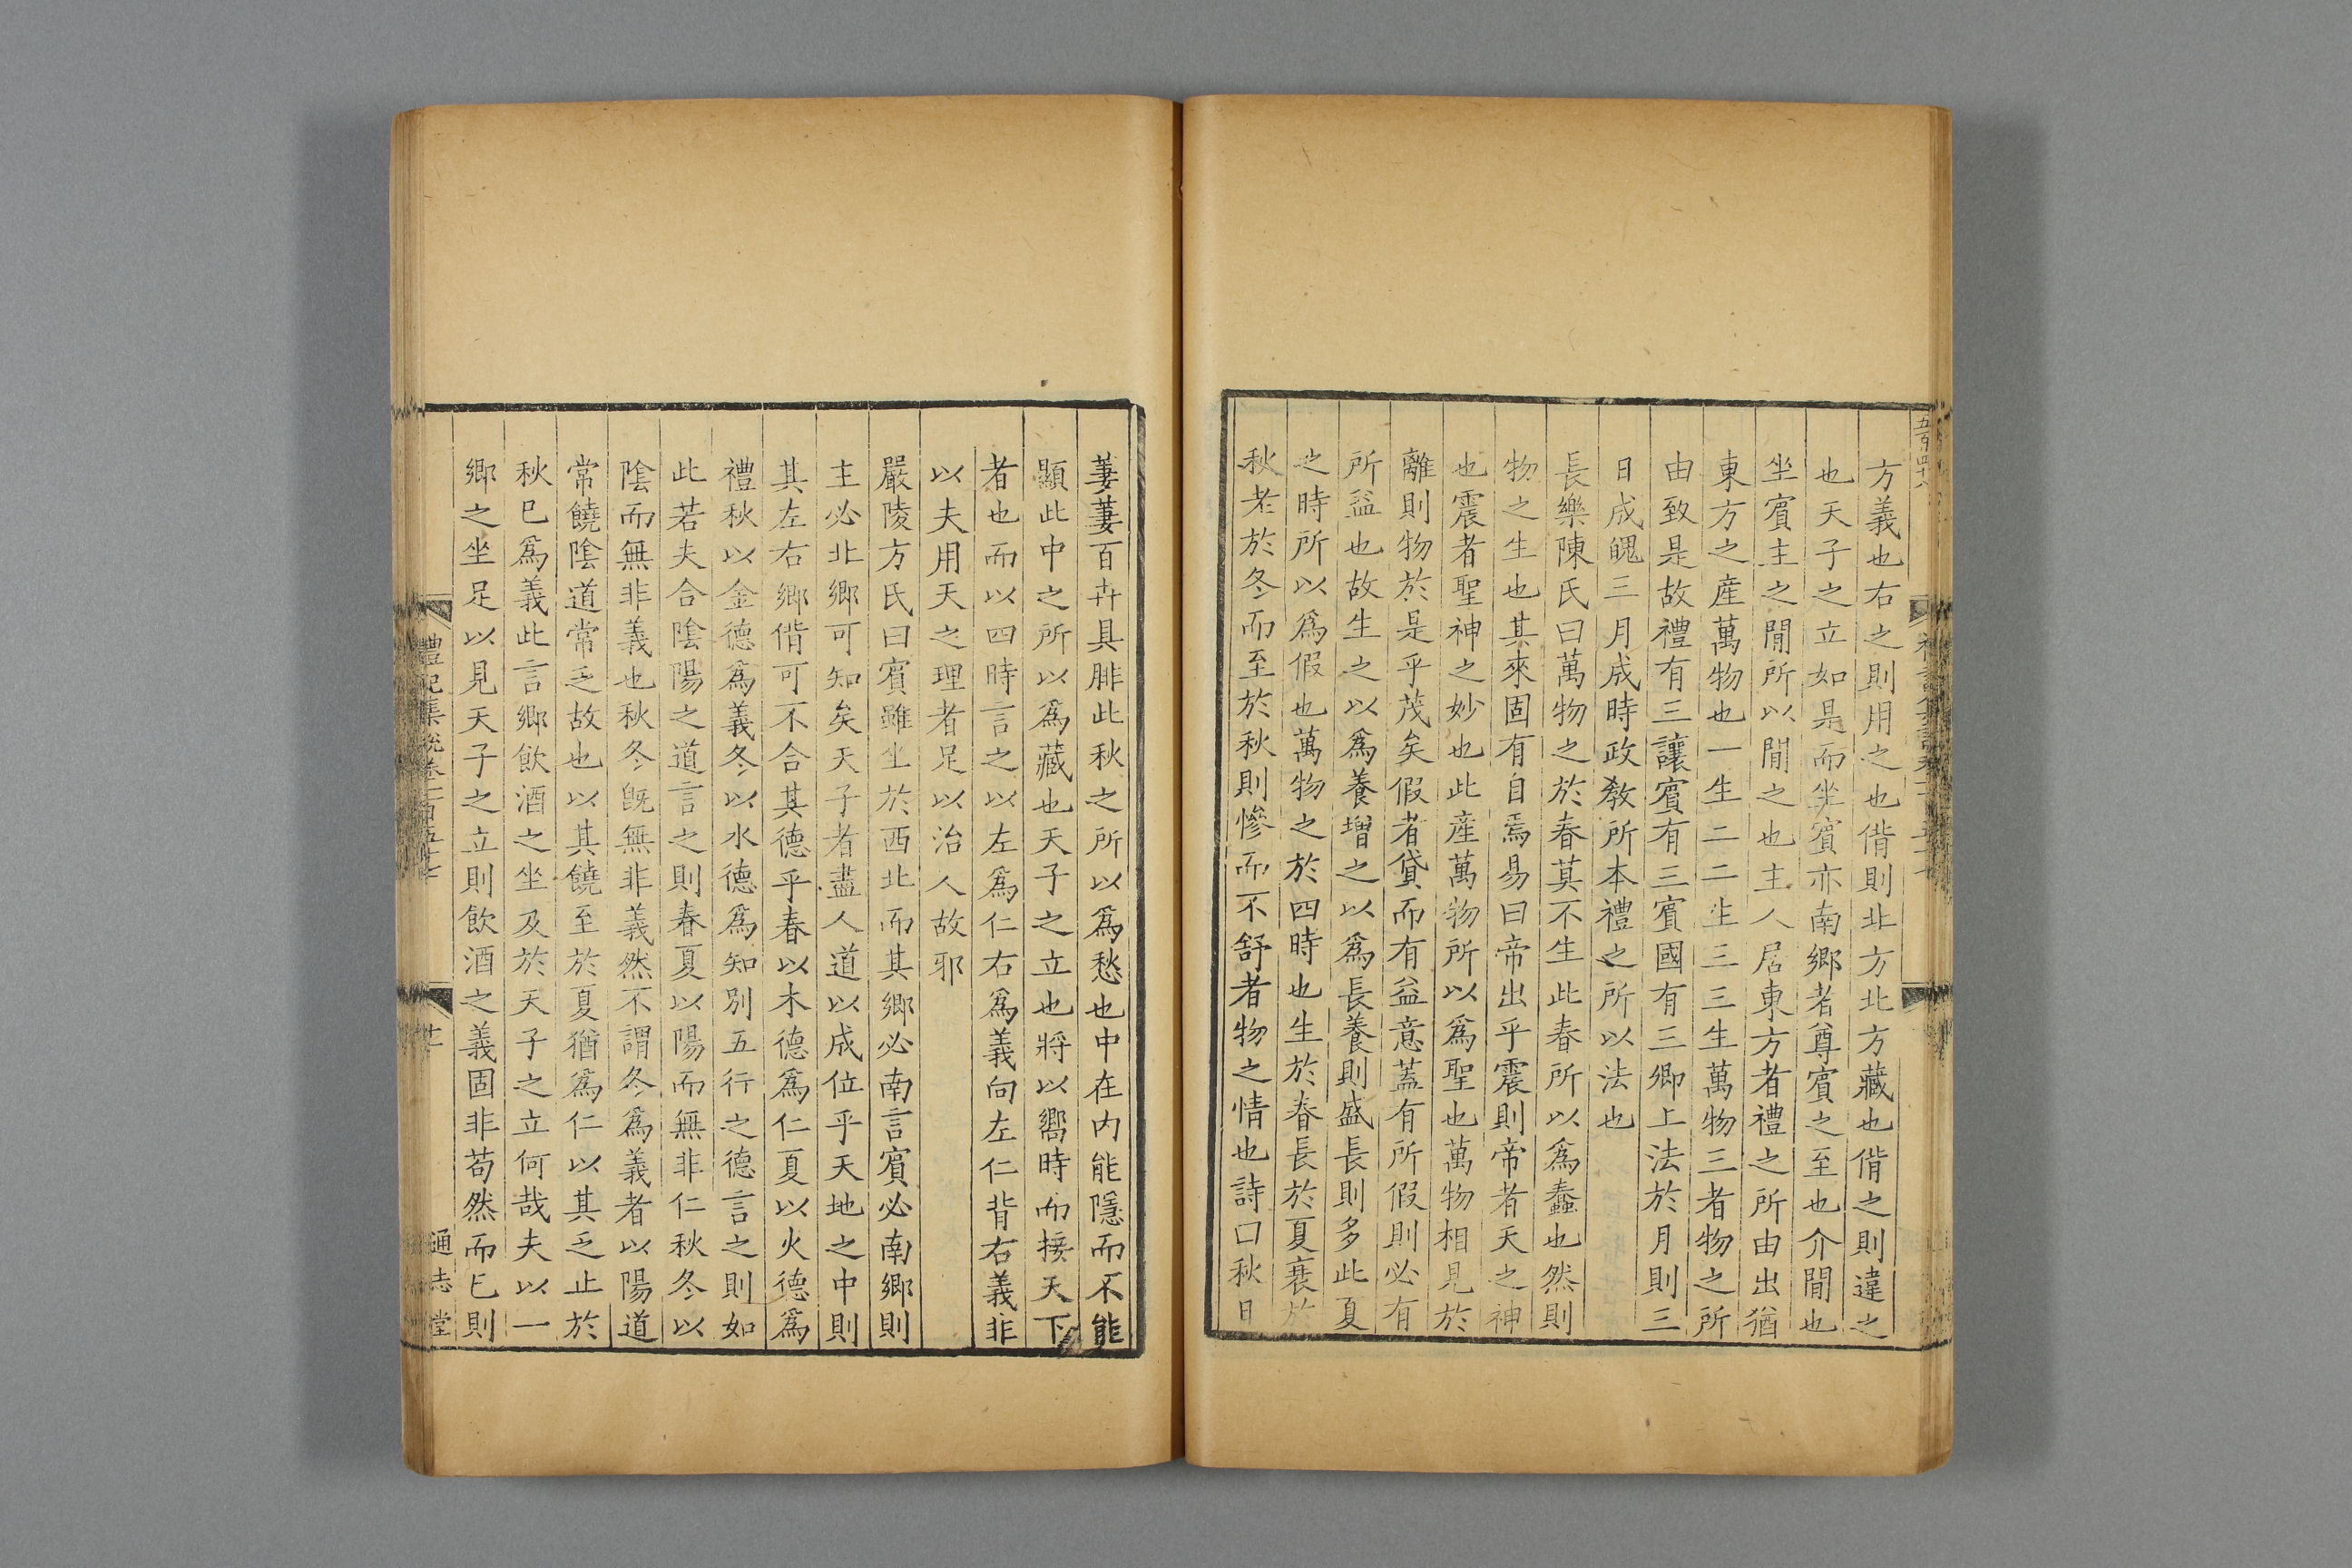 方義也右之則用之也偝則非方北方藏也偝之則違之
也天子之立如是而坐賓亦南鄉者尊賓之至也介間也
坐賓主之間所以間之也主人居東方者禮之所由出猶
東方之產萬物也一生二二生三三生萬物三者物之所
由致是故禮有三讓賓有三賓國有三卿上法於月則三
日成魄三月成時政教所本禮之所以法也
長樂陳氏曰萬物之於春莫不生此春所以為蠢也然則
物之生也其來固有自焉易曰帝出乎震則帝者天之神
也震者聖神之妙也此產萬物所以為聖也萬物相見於
離則物於是乎茂矣假者貸而有益意蓋有所假則必有
所益也故生之以為養增之以為長養則盛長則多此夏
之時所以為假也萬物之於四時也生於春長於夏衰於
秋老於冬而至於秋則慘而不舒者物之情也詩曰秋日
萋萋百卉具腓此秋之所以為愁也中在內能隱而不能
顯此中之所以為藏也天子之立也將以嚮時而接天下
者也而以四時言之以左為仁右為義向左仁背右義非
以夫用天之理者足以治人故耶
嚴陵方氏曰賓雖坐於西北而其鄉必南言賓必南鄉則
主必北鄉可知矣天子者盡人道以成位乎天地之中則
其左右鄉偝可不合其德乎春以木德為仁夏以火德為
禮秋以金德為義冬以水德為知別五行之德言之則如
此若夫合陰陽之道言之則春夏以陽而無非仁秋冬以
陰而無非義也秋冬既無非義然不謂冬為義者以陽道
常饒陰道常乏故也以其饒至於夏猶為仁以其乏止於
秋已為義此言鄉飲酒之坐及於天子之立何哉夫以一
鄉之坐足以見天子之立則飲酒之義固非苟然而已則
禮記集說卷一百五十七
廿
通志堂